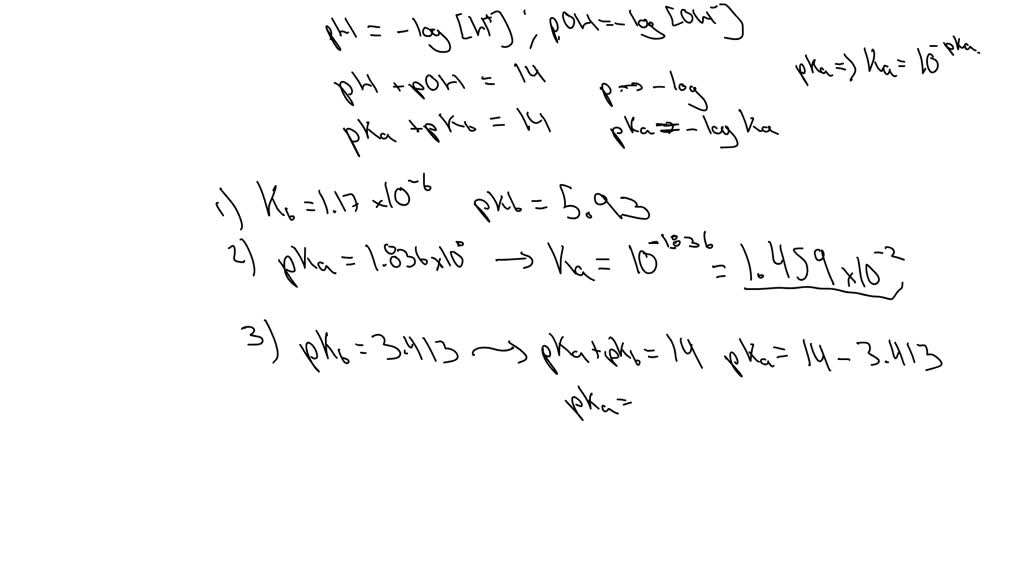 pH = -log [H⁺] ; pOH = -log [OH⁻]
pH + pOH = 14
p → -log
pKa => Ka = 10^-pKa.
pKa + pKb = 14
pKa = -log Ka
1) Kb = 1.17 x10^-6 pKb = 5.93
2) pKa = 1.836 x10^0 → Ka = 10^-1.836 = 1.459 x10^-2
3) pKb = 3.413 → pKa + pKb = 14 pKa = 14 - 3.413
pKa =